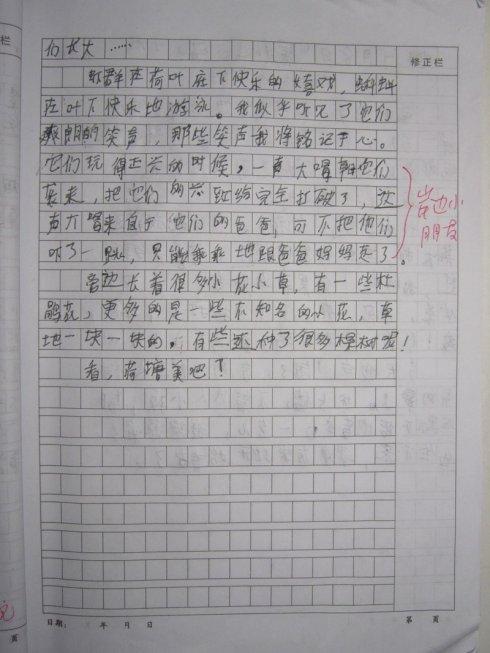 栏
修正栏
们长大……
虾群在荷叶底下快乐的嬉戏，蝌蚪
在叶下快乐地游泳。我似乎听见了它们
爽朗的笑声，那些笑声我将铭记于心。
它们玩得正兴的时候，一声大喝朝它们
袭来，把他们的兴致给完全打破了，这
声大喝来自于他们的爸爸，可不把他们
吓了一跳，只能乖乖地跟爸爸妈妈走了。
岸边小
朋友
旁边长着很多小花小草，有一些杜
鹃花，更多的是一些不知名的小花，草
地一块一块的，有些还种了很多棵树呢！
看，荷塘美吧？
日期： 年 月 日
第 页
页